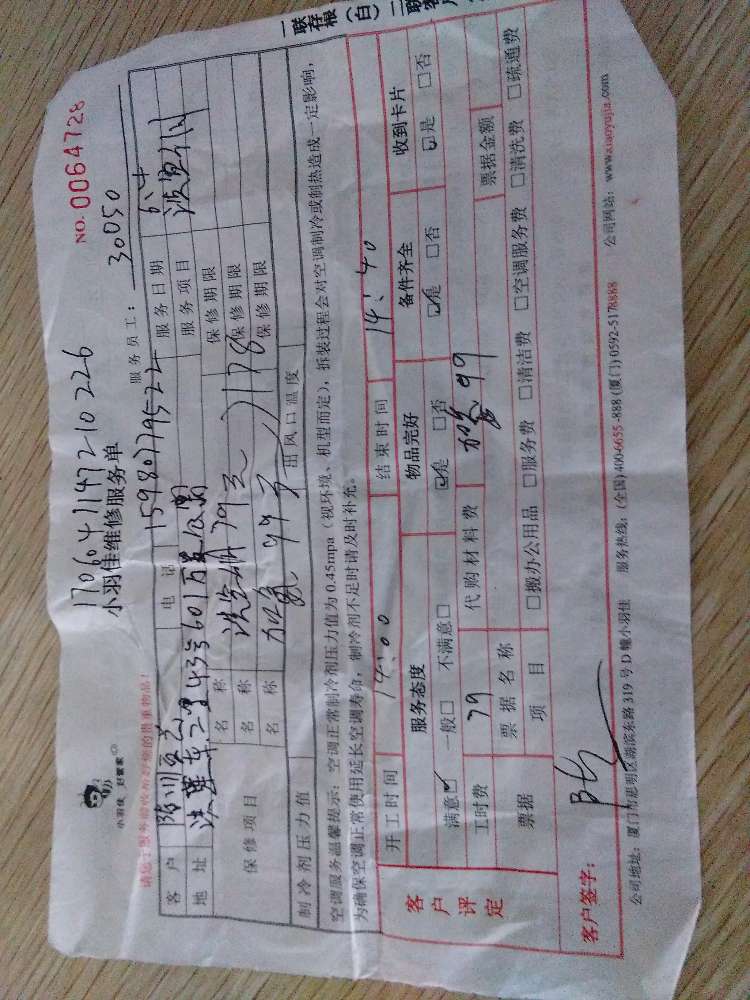 一联存根（白）二联客户
小羽佳 好管家
170604114721022​6
小羽佳维修服务单
NO. 0064728
请您于服务前收拾好您的贵重物品！
服务员工： 30050
客户 电话 15980779522 服务日期
地址 服务项目
保修项目 名称 洗空调 79元 保修期限
名称 加氨 99元 178 保修期限
名称 保修期限
制冷剂压力值 出风口温度
空调服务温馨提示：空调正常制冷剂压力值为0.45mpa（视环境、机型而定），拆装过程会对空调制冷或制热造成一定影响，
为确保空调正常使用延长空调寿命，制冷剂不足时请及时补充。
客户评定
开工时间 14：00 结束时间 14：40
服务态度 物品完好 备件齐全 收到卡片
满意☑ 一般□ 不满意□ ☑是 □否 ☑是 □否 ☑是 □否
工时费 79 代购材料费 99
票据 票据名称 票据金额
项目 □搬办公用品 □服务费 □清洁费 □空调服务费 □清洗费 □疏通费
客户签字：
公司地址：厦门市思明区湖滨东路319号D幢小羽佳 服务热线：(全国)400-6655-888 (厦门)0592-5178888 公司网站：www.xiaoyujia.com